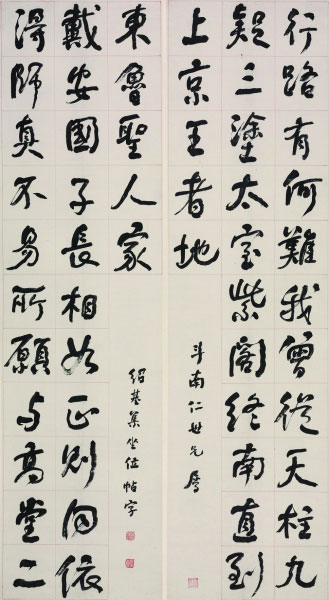 行路有何難我曾從天柱九
疑三塗太室紫閣終南直到
上京王者地
斗南仁世兄屬
得師真不易所願與高堂二
戴安國子長相如正則同依
東魯聖人家
紹基集坐位帖字